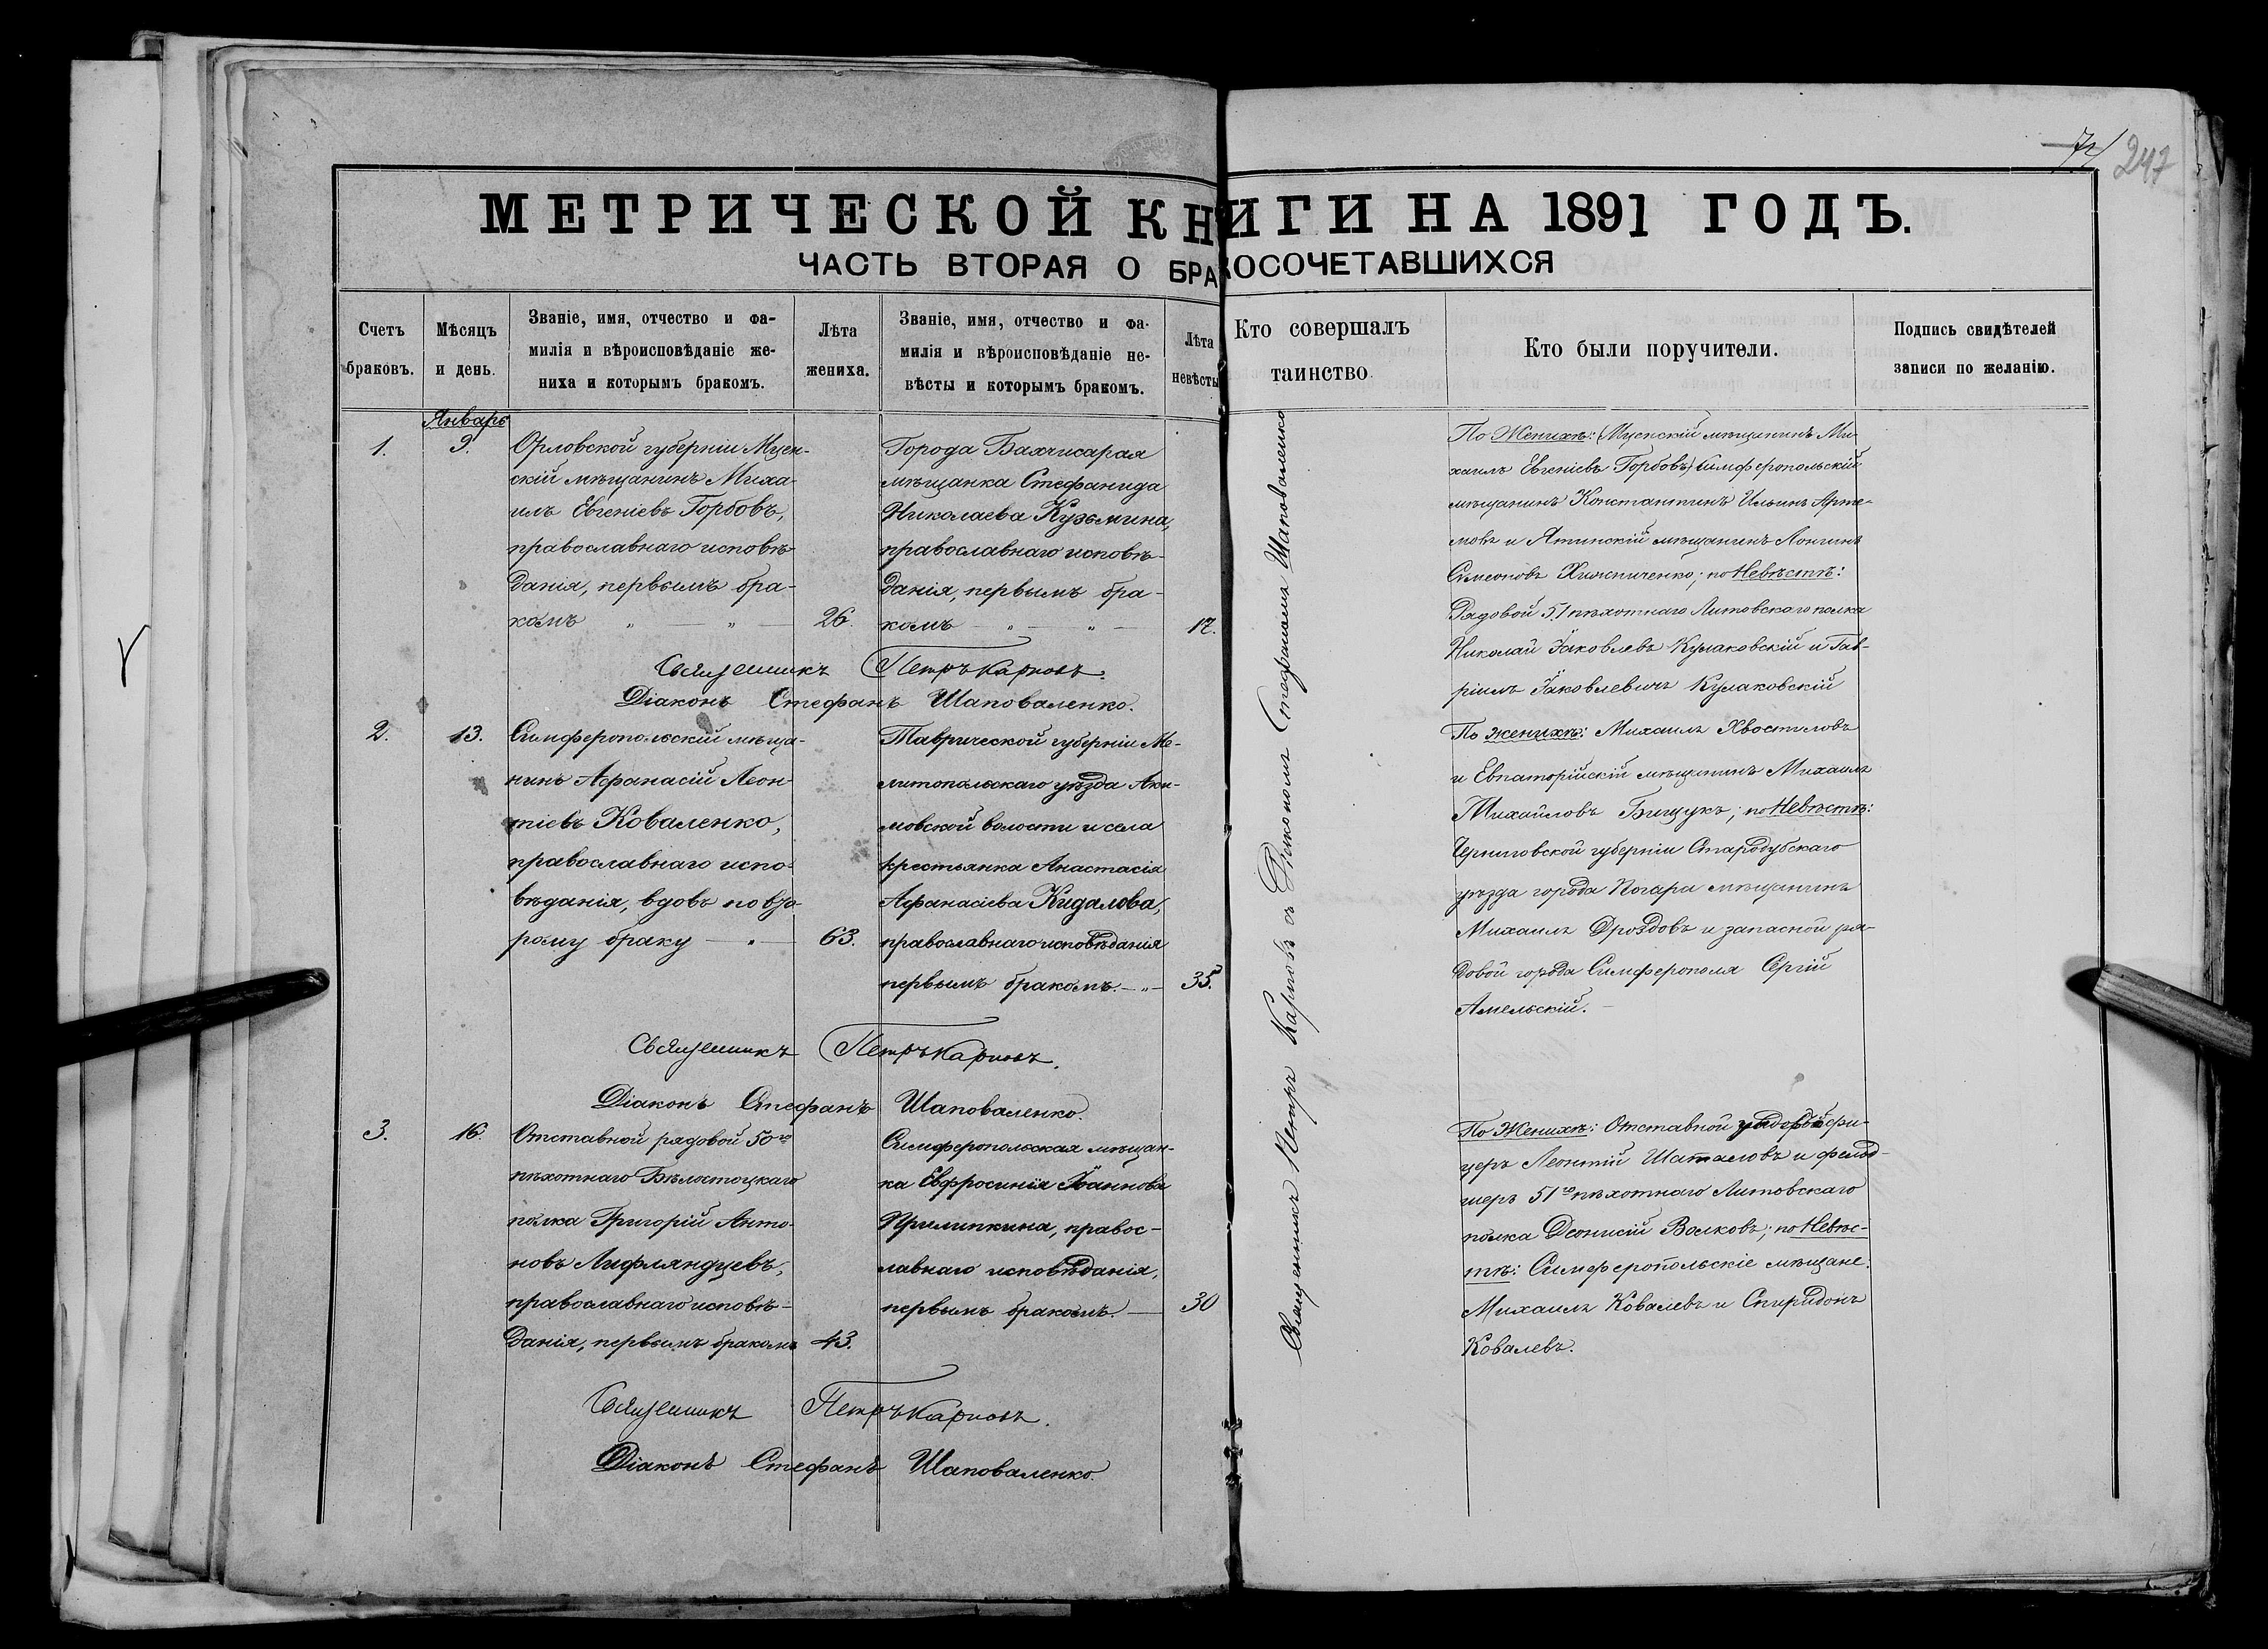 74 247
МЕТРИЧЕСКОЙ КНИГИ НА 1891 ГОДЪ.
ЧАСТЬ ВТОРАЯ О БРАКОСОЧЕТАВШИХСЯ
Счетъ
браковъ.
Мѣсяцъ
и день.
Званіе, имя, отчество и фа-
милія и вѣроисповѣданіе же-
ниха и которымъ бракомъ.
Лѣта
жениха.
Званіе, имя, отчество и фа-
милія и вѣроисповѣданіе не-
вѣсты и которымъ бракомъ.
Лѣта
невѣсты
Кто совершалъ
таинство
Кто были поручители.
Подпись свидѣтелей
записи по желанію.
Январь
1.
9.
Орловской губерніи Мцен-
скій мѣщанинъ Миха-
илъ Евгеніевъ Горбовъ,
православнаго исповѣ-
данія, первымъ бра-
комъ
26.
Города Бахчисарая
мѣщанка Стефанида
Николаева Кузьмина,
православнаго исповѣ-
данія, первымъ бра-
комъ
17.
Священникъ Петръ Карповъ.
Діаконъ Стефанъ Шаповаленко.
По Женихѣ: (Мценскій мѣщанинъ Ми-
хаилъ Евгеніевъ Горбовъ) Симферопольскій
мѣщанинъ Константинъ Ильинъ Арте-
мовъ и Ялтинскій мѣщанинъ Лонгинъ
Симеоновъ Хижниченко; по Невѣстѣ:
Рядовой 51 пѣхотнаго Литовскаго полка
Николай Іаковлевъ Кулаковскій и Гав-
ріилъ Іаковлевичъ Кулаковскій
2.
13.
Симферопольскій мѣща-
нинъ Афанасій Леон-
тіевъ Коваленко,
православнаго испо-
вѣданія, вдовъ по вто-
рому браку
63.
Таврической губерніи Ме-
литопольскаго уѣзда Аки-
мовской волости и села
крестьянка Анастасія
Афанасіева Кидалова,
православнаго исповѣданія
первымъ бракомъ.
35.
Священникъ Петръ Карповъ.
Діаконъ Стефанъ Шаповаленко.
По женихѣ: Михаилъ Хвостиловъ
и Евпаторійскій мѣщанинъ Михаилъ
Михайловъ Бищукъ; по Невѣстѣ:
Черниговской губерніи Стародубскаго
уѣзда города Погара мѣщанинъ
Михаилъ Дроздовъ и запасной ря-
довой города Симферополя Сергій
Амельскій.
3.
16.
Отставной рядовой 50го
пѣхотнаго Бѣлостоцкаго
полка Григорій Анто-
новъ Лифляндцевъ,
православнаго исповѣ-
данія, первымъ бракомъ
43.
Симферопольская мѣщан-
ка Евфросинія Іоаннова
Прилипкина, правос-
лавнаго исповѣданія,
первымъ бракомъ.
30
Священникъ Петръ Карповъ.
Діаконъ Стефанъ Шаповаленко.
По Женихѣ: Отставной
церъ Леонтій Шаталовъ и фельд-
шеръ 51го пѣхотнаго Литовскаго
полка Діонисій Волковъ; по Невѣс-
тѣ: Симферопольскіе мѣщане:
Михаилъ Ковалевъ и Спиридонъ
Ковалевъ.
Священникъ Петръ Карповъ съ Діакономъ Стефаномъ Шаповаленко